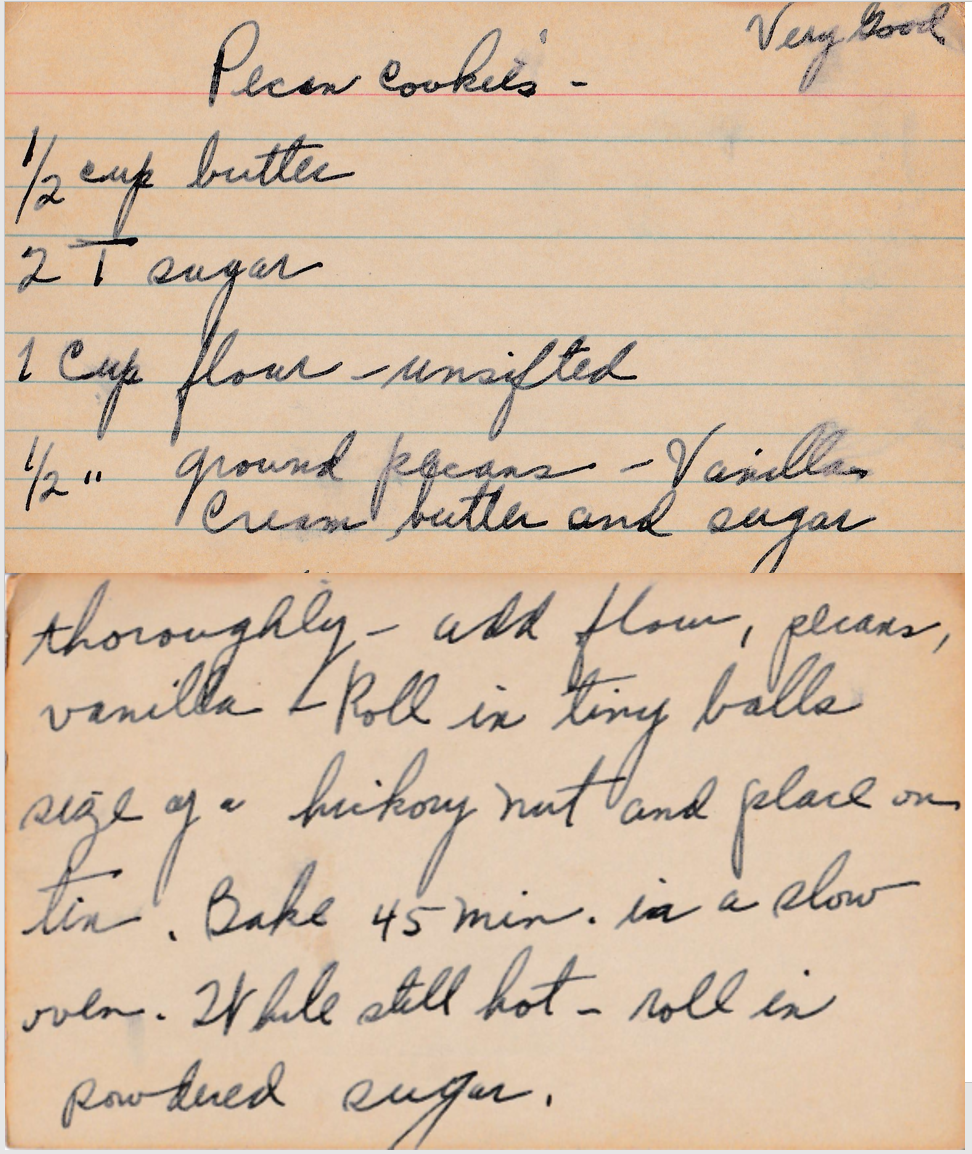 Very Good
Pecan cookies -
1/2 cup butter
2 T sugar
1 Cup flour - unsifted
1/2 " ground pecans - Vanilla
Cream butter and sugar
thoroughly - add flour, pecans,
vanilla - Roll in tiny balls
size of a hickory nut and place on
tin. Bake 45 min. in a slow
oven. While still hot - roll in
powdered sugar.